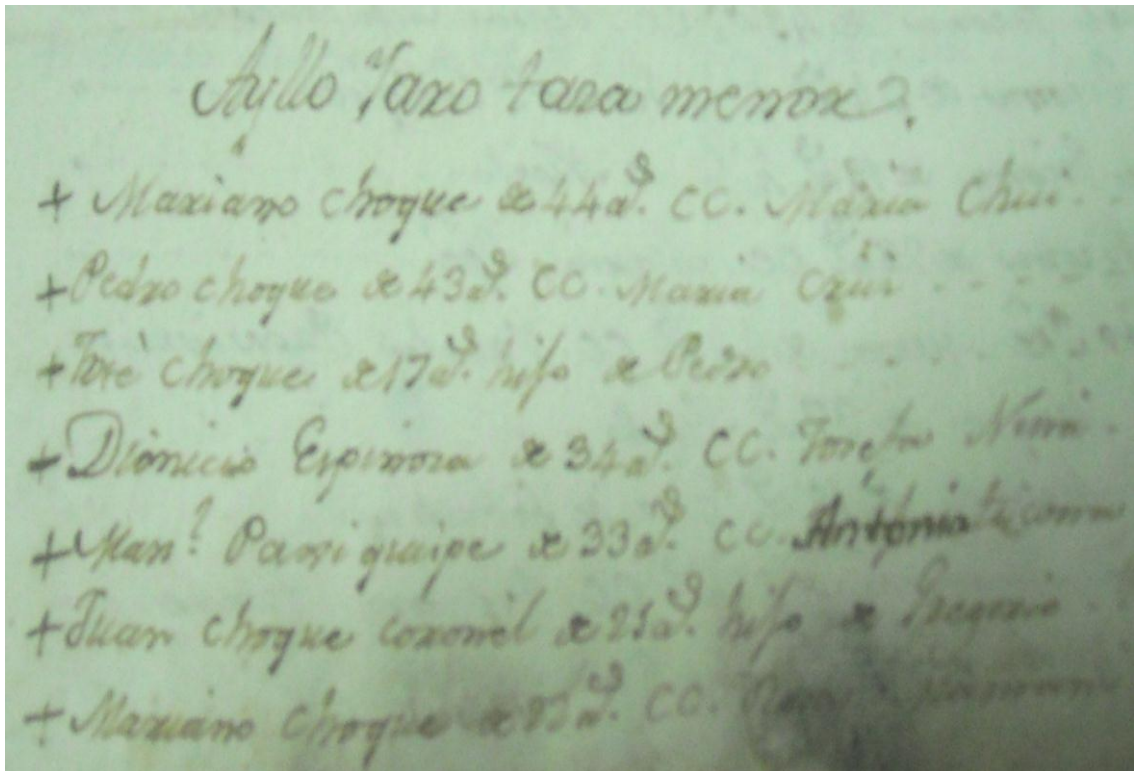 Ayllo Taxo tara menor.
+ Mariano choque de 44 as. CC. Maria Chui.
+ Pedro choque de 43 as. CC. Maria Chui
+ José choque de 17 as. hijo de Pedro
+ Dionicio Espinosa de 34 as. CC. Josefa Nina.
+ Manl. Pariquipe de 33 as. CC. Antonia
+ Juan choque coronel de 25 as. hijo de Gregorio.
+ Mariano choque de as. CC. Mamani